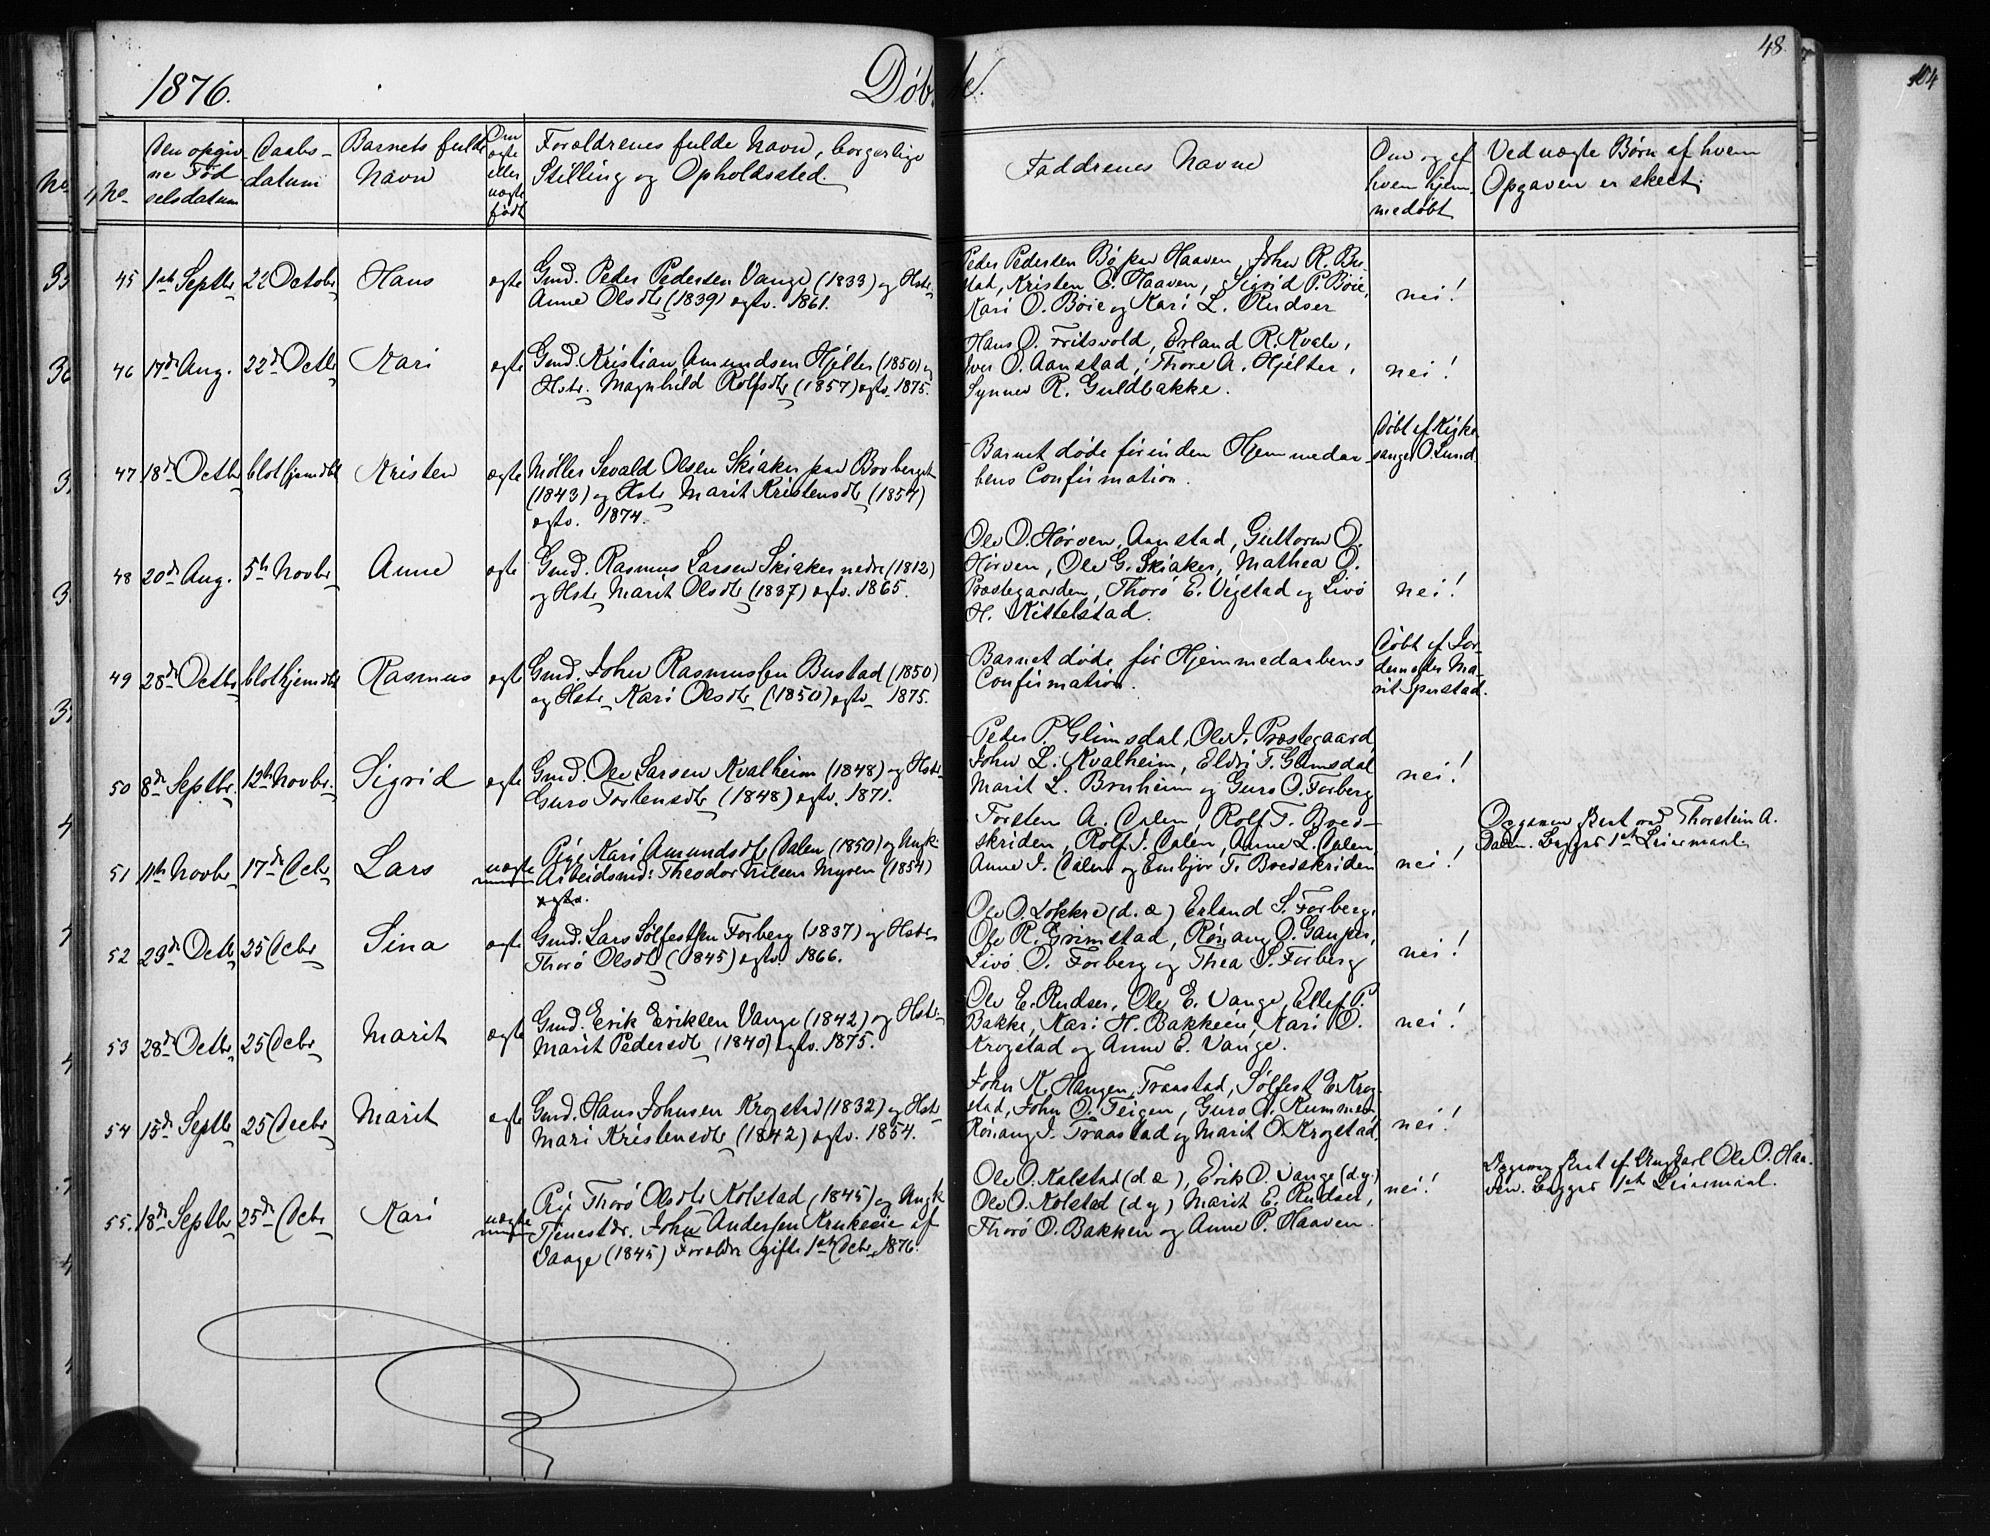 48.
104
1876.
Døbte.
No
No
Den opgiv-
ne Fød-
selsdatum
Daabs-
datum
Barnets fulde
Navn
Om
ægte
eller
uægte
født
Forældrenes fulde Navn, borgerlige
Stilling og Opholdssted
Faddrenes Navne
Om og af
hvem hjem-
medøbt
Ved uægte Børn af hvem
Opgaven er skeet.
45 1ste Septbr 22 Octobr Hans ægte
Gmd. Peder Pedersen Vange (1833) og Hstr
Anne Olsdtr (1839) egtv. 1861.
Peder Pedersen Bø per Haaven, John R. Bu-
stad, Kristen E. Haaven, Sigrid P. Bøie,
Kari O. Bøie og Kari L. Rudser
nei!
46 17de Aug. 22de Octbr Kari ægte
Gmd. Kristian Amundsen Hjelter (1850) og
Hstr. Magnhild Rolfsdtr (1857) egtv. 1875.
Hans O. Fritsvold, Erland R. Kvale,
Iver O. Aanstad, Thore A. Hjelter,
Synnev R. Guldbakke.
nei!
47 18de Octbr blot hjemdbt Kristen ægte
Møller Sevald Olsen Skiaker paa Bovberget
(1843) og Hstr Marit Kristensdtr (1854)
egtv. 1874.
Barnet døde förinden Hjemmedaa-
bens Confirmation.
Døbt af Kirke-
sanger O. Lund
48 20de Aug. 5te Novbr Anne ægte
Gmd. Rasmus Larsen Skiaker nedre (1812)
og Hstr Marit Olsdtr (1837) egtv. 1865.
Ole O. Hørven, Aanstad, Guttorm O.
Hørven, Ole G. Skiaker, Mathea O.
Præstegaarden, Thorø E. Vigstad og Livø
H. Kittelstad.
nei!
49 28de Octbr blot hjemdbt Rasmus ægte
Gmd. John Rasmussen Bustad (1850)
og Hstr Kari Olsdtr (1850) egtv 1875.
Barnet døde för Hjemmedaabens
Confirmation.
Døbt af Jor-
demoder Ma-
rit Sperstad.
50 8de Septbr 12te Novbr. Sigrid ægte
Gmd. Ole Larsen Kvalheim (1848) og Hstr
Guro Torstensdtr (1848) egtv. 1871.
Peder P. Glimsdal, Ole I. Præstegaard,
John L. Kvalheim, Eldri T. Glimsdal
Marit L. Bruheim og Guro O. Forberg
nei!
51 11te Novbr 17de Decbr Lars uægte
Pige Kari Amundsdtr Dalen (1850) og Ungk.
Arbeidsmd: Theodor Nilsen Myren (1854)
Torsten A. Dalen, Rolf T. Bred-
skriden, Rolf I. Dalen, Anne L. Dalen
Anne I. Dalen og Embjør T. Bredskriden
nei!
Opgaven skeet ved Thorstein A.
Dalen. Begges 1ste Leiermaal.
52 29de Octbr 25 Decbr Sina ægte
Gmd. Lars Sölfestsen Forberg (1837) og Hstr
Thorø Olsdtr (1845) egtv. 1866.
Ole O. Løkkre (d. æ) Erland S. Forberg,
Ole R. Grimstad, Rønnaug O. Ganger,
Livø O. Forberg og Thea S. Forberg
nei!
53 28de Octbr 25 Decbr Marit ægte
Gmd. Erik Eriksen Vange (1842) og Hstr
Marit Pedersdtr (1840) egtv. 1875.
Ole E. Rudser, Ole E. Vange, Ellef P.
Bakke, Kari H. Bakkeen, Kari O.
Krogstad og Anne E. Vange.
nei!
54 15de Septbr 25 Decbr Marit ægte
Gmd. Hans Johnsen Krogstad (1832) og Hstr
Mari Kristensdtr (1842) egtv. 1854.
John K. Haugen, Traastad, Sølfest E. Krog-
stad, John O. Teigen, Guro A. Rummen
Rønnaug I. Traastad og Marit O. Krogstad.
nei!
55. 18de Septbr 25de Decbr Kari uægte
Pige Thorø Olsdtr Kolstad (1845) og Ungk
Tjenestdr. John Andersen Krukeeie af
Vaage (1845) Foreldre gifte 1ste Decbr 1876.
Ole O. Kolstad (d. æ), Erik O. Vange (d. y.)
Ole O. Kolstad (d y) Marit E. Rudser,
Thorø O. Bakken og Anne P. Haaven.
nei!
Opgaven skeet af Ungkarl Ole O. Haa-
ven. Begges 1ste Leiermaal.